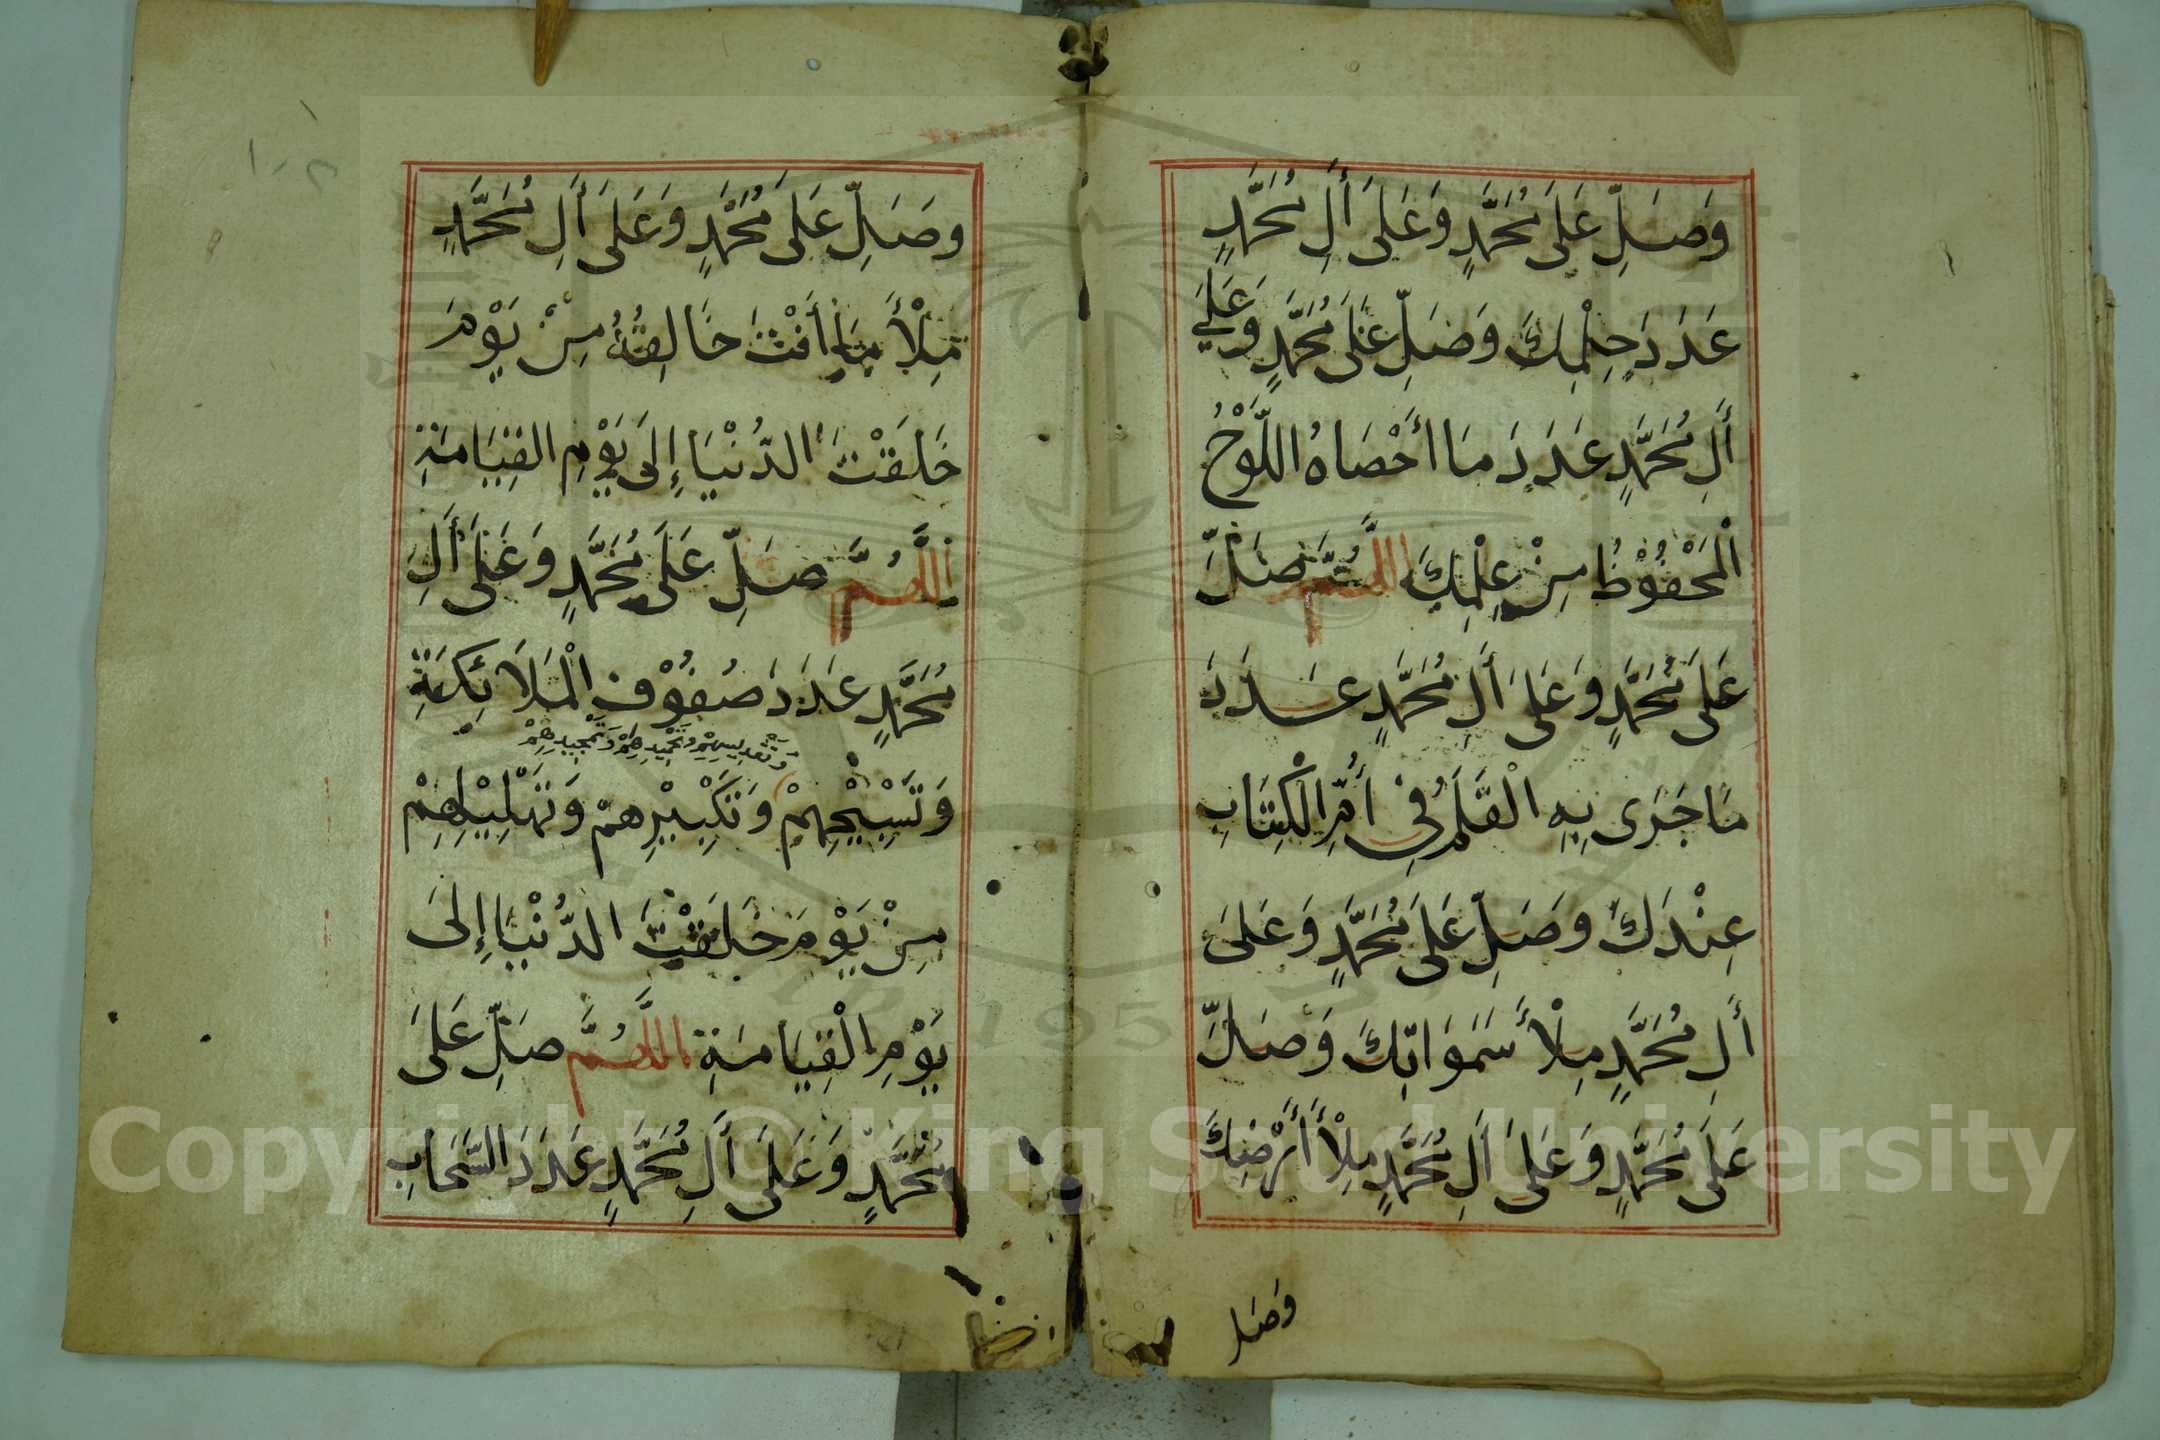 وَصَلِّ عَلَى مُحَمَّدٍ وَعَلَى أَلِ مُحَمَّدٍ
عَدَدَ حِلْمِكَ وَصَلِّ عَلَى مُحَمَّدٍ وَعَلَى
أَلِ مُحَمَّدٍ عَدَدَ مَا أَحْصَاهُ اللَّوْحُ
الْمَحْفُوْظُ مِنْ عِلْمِكَ اللَّهُمَّ صَلِّ
عَلَى مُحَمَّدٍ وَعَلَى أَلِ مُحَمَّدٍ عَدَدَ
مَا جَرَى بِهِ الْقَلَمُ فِي أُمِّ الْكِتَابِ
عِنْدَكَ وَصَلِّ عَلَى مُحَمَّدٍ وَعَلَى
أَلِ مُحَمَّدٍ مِلْأَ سَمَوَاتِكَ وَصَلِّ
عَلَى مُحَمَّدٍ وَعَلَى أَلِ مُحَمَّدٍ مِلْأَ أَرْضِكَ
وَصَلِ
وَصَلِّ عَلَى مُحَمَّدٍ وَعَلَى أَلِ مُحَمَّدٍ
مِلْأَ مَا أَنْتَ خَالِقُهُ مِنْ يَوْمِ
خَلَقْتَ الدُّنْيَا إِلَى يَوْمِ الْقِيَامَةِ
اللَّهُمَّ صَلِّ عَلَى مُحَمَّدٍ وَعَلَى أَلِ
مُحَمَّدٍ عَدَدَ صُفُوْفِ الْمَلَائِكَةِ
وَتَقْدِيسِهِمْ وَتَحْمِيدِهِمْ وَتَمْجِيدِهِمْ
وَتَسْبِيْحِهِمْ وَتَكْبِيْرِهِمْ وَتَهْلِيْلِهِمْ
مِنْ يَوْمَ خَلَقْتَ الدُّنْيَا إِلَى
يَوْمِ الْقِيَامَةِ اللَّهُمَّ صَلِّ عَلَى
مُحَمَّدٍ وَعَلَى أَلِ مُحَمَّدٍ عَدَدَ السَّحَابِ
Copyright © King Saud University